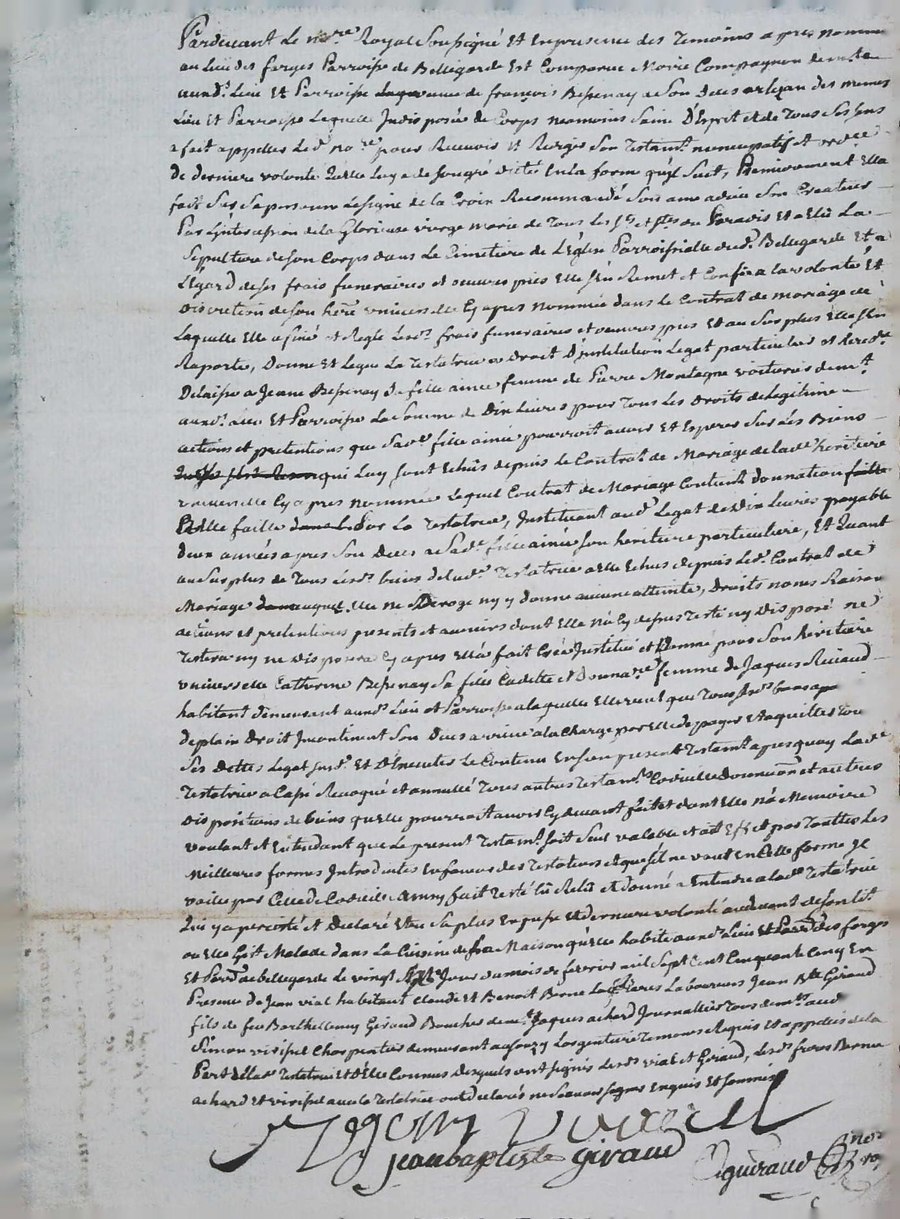 Pardevant Le nore Royal Soussigné Et En presence des Temoins apres nommés
au Lieu des forges Parroisse de Bellegarde Est Comparue Marie Compagnon demte
aud. Lieu Et Parroisse veuve de francois Bessenay a Son Deces artizan des memes
Lieu et Parroisse Laquelle Indisposée de Corps neamoins Saine D'Esprit et de Tous Ses Sens
a fait appeller Led. nore pour Recevoir Et Rediger Son Testamt. nuncupatif et
De derniere volonté quelle Luy a de Son gré dicté En la forme quy Suit, Premierement Ella
fait Sur Sa personne Le Signe de la Croix Recommandé Son ame a dieu Son Createur
Par L'intercession de la Glorieuse vierge marie de Tous Les Sts et Stes du Paradis Et a Elû La
Sepulture de Son Corps dans Le Cimetiere de L'Eglise Parroissialle dud. Bellegarde Et a
L'Egard de Ses frais funeraires et oeuvres pies Elle S'En Remet et Confere a la volonté Et
Discretion de Son here universelle Cy apres nommée dans le Contrat de mariage de
Laquelle Elle a finé et Reglé Lesd. frais funeraires et oeuvres pies Et au Surplus Elle S'En
Raporte, Donne et Legue La Testatrice a Droit D'institution Legat particulier et heredre
Delaisse a Jeane Bessenay Sa fille ainée femme de Pierre Montagne voiturier demt.
aud. Lieu Et Parroisse La Somme de Dix Livres pour Tous Les Droits de Legitime
actions et pretentions que Sad. fille ainée pourroit avoir Et Esperer Sur Les Biens
qui Luy Sont Echus depuis Le Contrat de Mariage de lad. heritiere
universelle Cy apres nommée Lequel Contrat de Mariage Contient donnation
faitte Par La Testatrice, Instituant aud. Legat de Dix Livres payable
deux années apres Son Deces a Sad. fille ainée Son heritiere particuliere, Et Quant
au Surplus de Tous Lesd. biens de lad. Testatrice a Elle Echus depuis Led. Contrat de
Mariage auquel Elle ne Deroge ny y donne aucune atteinte, Droits noms Raison
actions et pretentions presents et avenirs dont Elle n'a Cy depus Testé ny Disposé ne
Testera ny ne Disposera Cy apres Ella fait Créé Institué et Nommé pour Son heritiere
universelle Catherine Bessenay Sa fille Cadette et Donnare femme de Jaques
habitant demeurant aud. Lieu et Parroisse a laquelle Elle veut que Tous Sesd. biens
de plain Droit Incontinent Son Deces arrivé a la Charge par Elle de payer Et aquitter Tou
Ses Dettes Legat Susd. Et D'Executer Le Contenu En Son present Testamt. apres quoy Lade
Testatrice a Cassé Revoqué et annullé Tous autres Testamts. Codicille Donnaon et autres
Dispositions de biens quelle pourroit avoir Cy devant fait et dont Elle n'a Memoire
voulant et Entendant que Le present Testamt. Soit Seul valable et ait Eff et par Touttes Les
Meilleures formes Introduites En faveurs des Testateurs et que S'il ne vaut En Cette forme Il
vaille par Celle de Codicille ainsy fait Testé Lû Relû et donné a Entendre a lade Testatrice
Qui y a persisté et Declaré Etre Sa plus Expresse et derniere volonté audevant de Son lit
ou Elle Git Malade dans La Cuisine de Sa Maison qu'Elle habite aud. Lieu des forges
Et Parsse de Bellegarde Le vingt Sept Jour du mois de fevrier mil Sept Cent Cinquante Cinq En
Presence de Jean vial habitant Claude Et Benoit Berne freres Laboureurs Jean Bte Giraud
fils de feu Barthellemy Giraud Boucher demt. Jaques achard Journallier Tous demt. aud
Simon virissel Charpentier demeurant a Temoins Requis Et appellés de la
Part de lade Testatrice Et d'Elle Connus Desquels ont Signés Lesd. vial et Giraud, Lesd. freres Berne
achard et virissel avec la Testatrice ont Declarés ne Scavoir Signer Enquis Et Sommés
Jean Vial
jean baptiste giraud
guiraud nore